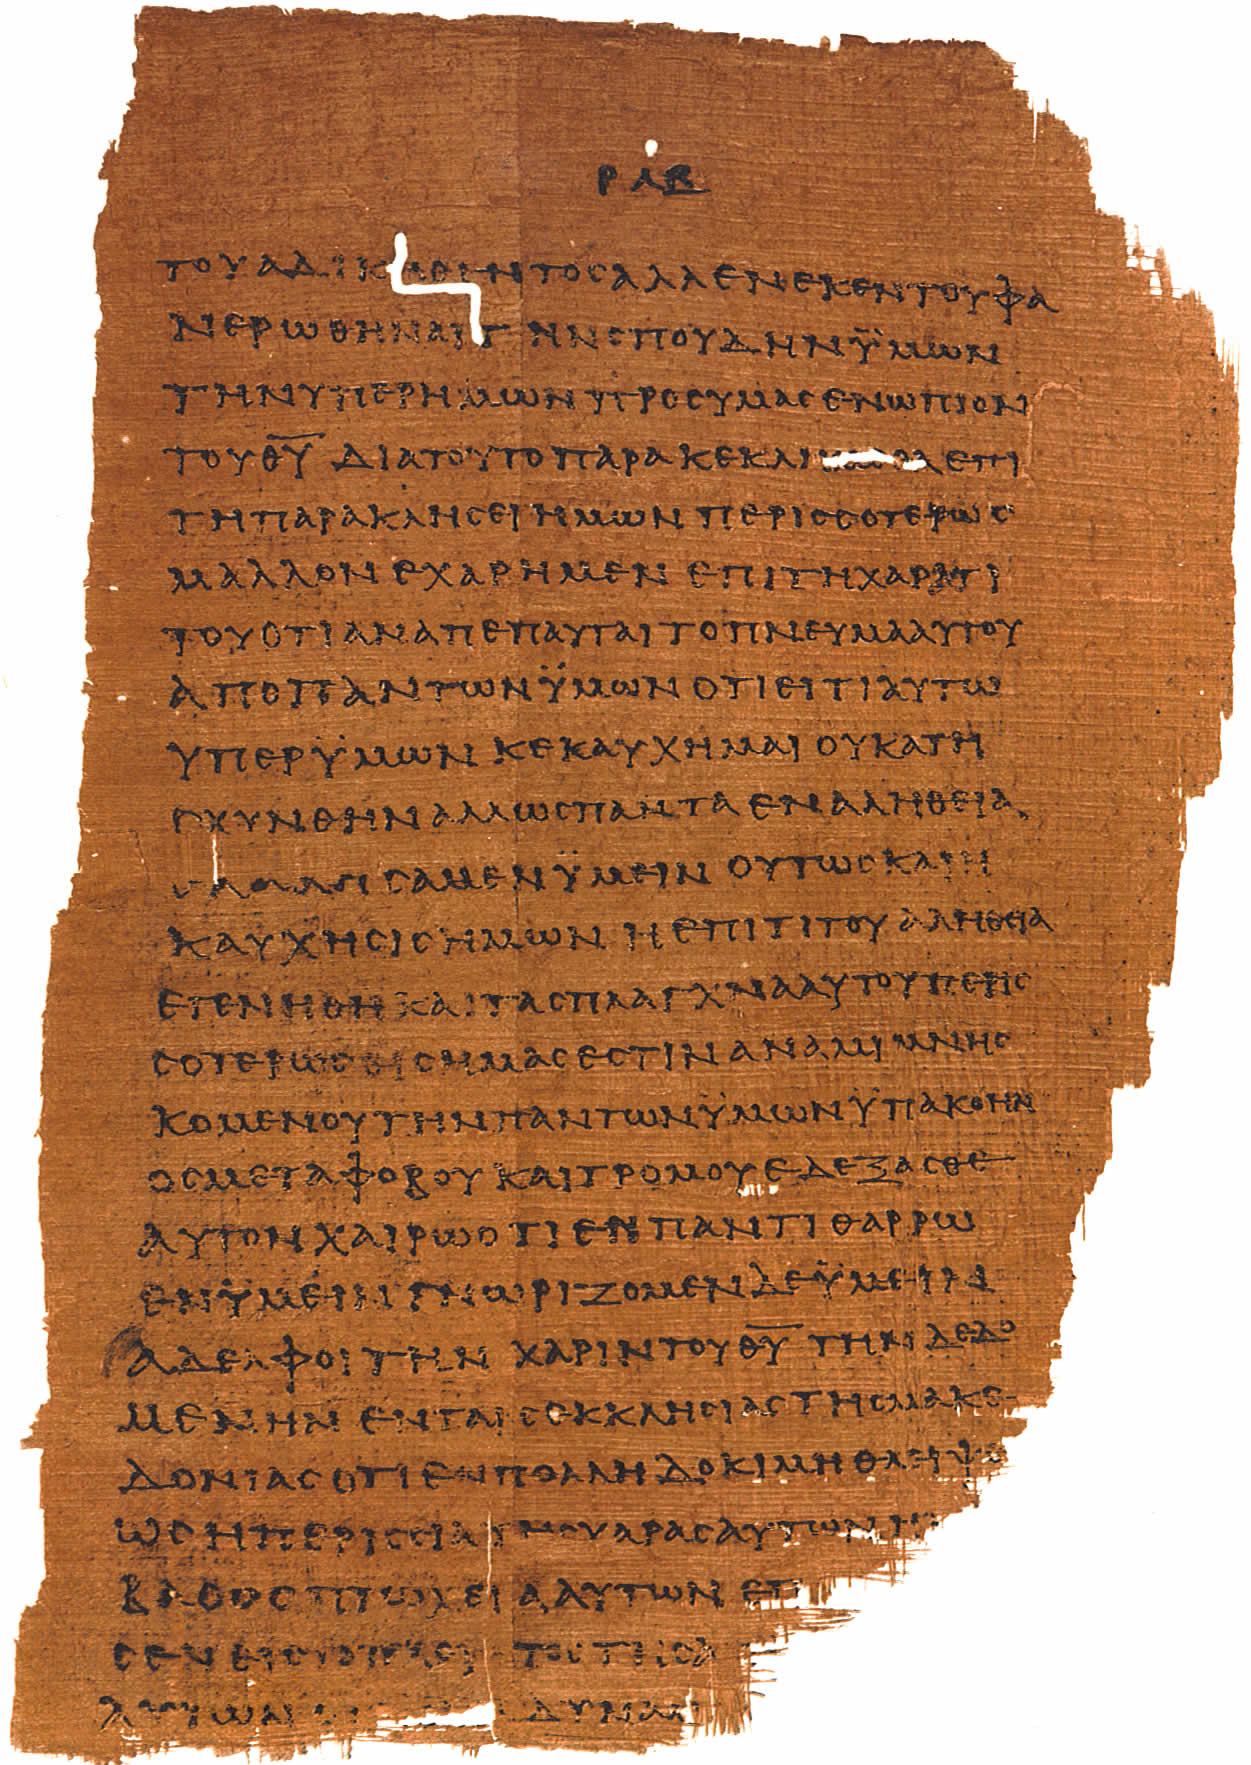 ΡΛΒ
ΤΟΥΑΔΙΚΗΘΕΝΤΟΣΑΛΛΕΝΕΚΕΝΤΟΥΦΑ
ΝΕΡΩΘΗΝΑΙΤΗΝΣΠΟΥΔΗΝΫΜΩΝ
ΤΗΝΥΠΕΡΗΜΩΝΠΡΟΣΥΜΑΣΕΝΩΠΙΟΝ
ΤΟΥΘ̅Υ̅ ΔΙΑΤΟΥΤΟΠΑΡΑΚΕΚΛΗΜΕΘΑΕΠΙ
ΤΗΠΑΡΑΚΛΗΣΕΙΗΜΩΝ ΠΕΡΙΣΣΟΤΕΡΩΣ
ΜΑΛΛΟΝΕΧΑΡΗΜΕΝ ΕΠΙΤΗΧΑΡΑΤΙ
ΤΟΥΟΤΙΑΝΑΠΕΠΑΥΤΑΙΤΟΠΝΕΥΜΑΑΥΤΟΥ
ΑΠΟΠΑΝΤΩΝΫΜΩΝΟΤΙΕΙΤΙΑΥΤΩ
ΥΠΕΡΫΜΩΝ ΚΕΚΑΥΧΗΜΑΙ ΟΥΚΑΤΗ
ΣΧΥΝΘΗΝΑΛΛΩΣΠΑΝΤΑΕΝΑΛΗΘΕΙΑ
ΕΛΑΛΗΣΑΜΕΝΫΜΕΙΝ ΟΥΤΩΣΚΑΙΗ
ΚΑΥΧΗΣΙΣΗΜΩΝ ΗΕΠΙΤΙΤΟΥΑΛΗΘΕΙΑ
ΕΓΕΝΗΘΗΚΑΙΤΑΣΠΛΑΓΧΝΑΑΥΤΟΥΠΕΡΙΣ
ΣΟΤΕΡΩΣΕΙΣΗΜΑΣΕΣΤΙΝΑΝΑΜΙΜΝΗΣ
ΚΟΜΕΝΟΥΤΗΝΠΑΝΤΩΝΫΜΩΝΫΠΑΚΟΗΝ
ΩΣΜΕΤΑΦΟΒΟΥΚΑΙΤΡΟΜΟΥΕΔΕΞΑΣΘΕ
ΑΥΤΟΝΧΑΙΡΩΟΤΙΕΝΠΑΝΤΙΘΑΡΡΩ
ΕΝΫΜΕΙΝ ΓΝΩΡΙΖΟΜΕΝΔΕΫΜΕΙΝ
ΑΔΕΛΦΟΙΤΗΝ ΧΑΡΙΝΤΟΥΘ̅Υ̅ ΤΗΝΔΕΔΟ
ΜΕΝΗΝ ΕΝΤΑΙΣΕΚΚΛΗΣΙΑΣΤΗΣΜΑΚΕ
ΔΟΝΙΑΣΟΤΙΕΝΠΟΛΛΗΔΟΚΙΜΗΘΛΕΙΨ
ΩΣΗΠΕΡΙΣΣΙΑΤΗΣΧΑΡΑΣΑΥΤΩΝ
ΒΑΘΟΥΣΠΤΩΧΕΙΑΑΥΤΩΝ ΕΠ
ΣΕΝΕΙΣΤΟΠΛΟΥΤΟΣΤΗΣΑ
ΑΥΤΩΝ ΔΥΝΑΜ